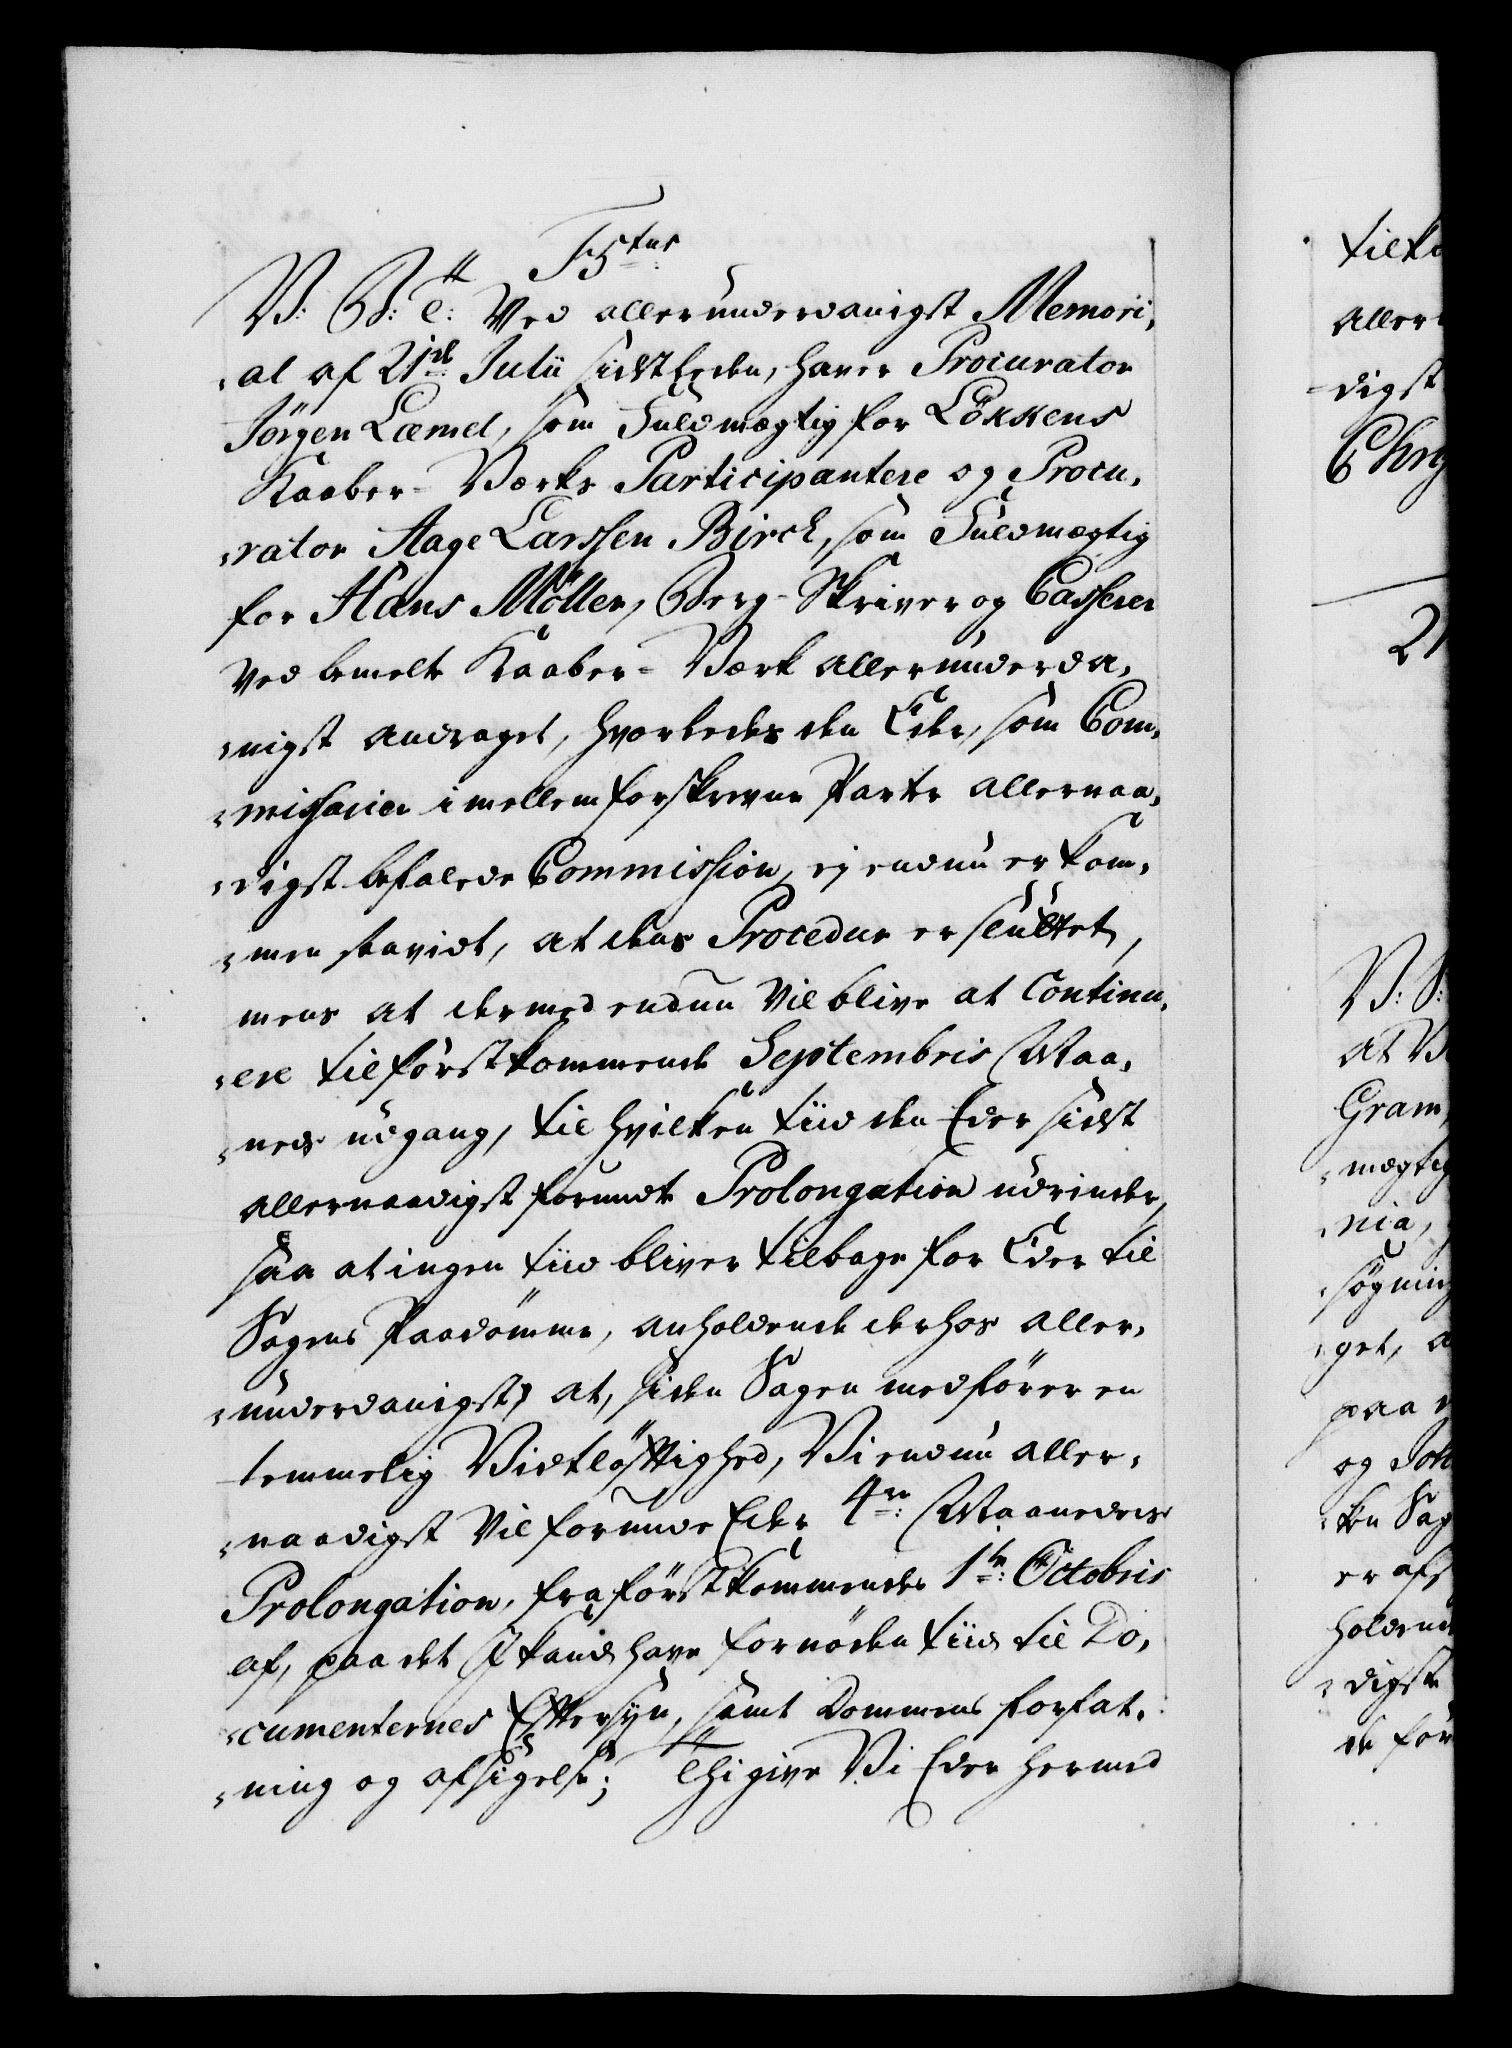 F5tus
V: G: T: Ved allerunderdanigst Memori„
„al af 21de Julii sidstleden, haver Procurator
Jörgen Læmel, som Fuldmægtig for Lökkens
Kaaber-Værks Participantere og Procu„
„rator Aage Larssen Birch, som Fuldmægtig
for Hans Möller, Berg-Skriver og Casserer
ved bemelte Kaaber-Værk allerunderda„
„nigst andraget, hvorledes den Eder, som Com„
„missarier imellem forskrevne Parter allernaa„
„digst befalede Commission, ej endnu er kom„
„men saavidt, at dens Procedur er sluttet,
mens at dermed endnu vil blive at Continu„
„ere til förstkommende Septembris Maa„
„neds udgang, til hvilken tiid den Eder sidst
allernaadigst forundte Prolongation udrinder,
saa at ingen tiid bliver tilbage for Eder til
Sagens Paadömme, anholdende derhos aller„
„underdanigst, at, siden Sagen medförer en
temmelig Vidtlöftighed, Vi endnu aller„
„naadigst vil forunde Eder 4re: Maaneders
Prolongation, fra förstkommende 1te: Octobris
af, paa det I kand have fornöden tiid til Do„
„cumenternes Eftersyn, samt Dommens forfat„
„ning og afsigelse; Thi give Vi Eder hermed
tilk
aller
digst
Chry
21
V: G:
at V
Gram,
„mægtig
„nia,
„sögning
„get, a
paa
og Joh
„ken Sag
er afs
holdend
„digste
de for